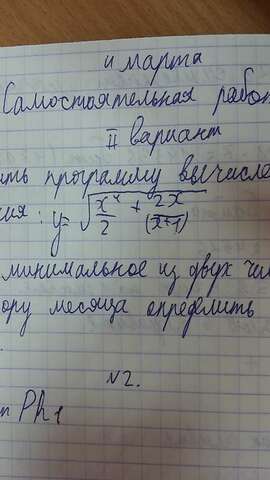 11 марта
Самостоятельная работ
II вариант
ить программу вычисле
ия: y=√(x⁴/2 + 2x/(x+1))
минимальное из двух чис
ору месяца определить
№2.
m Ph1